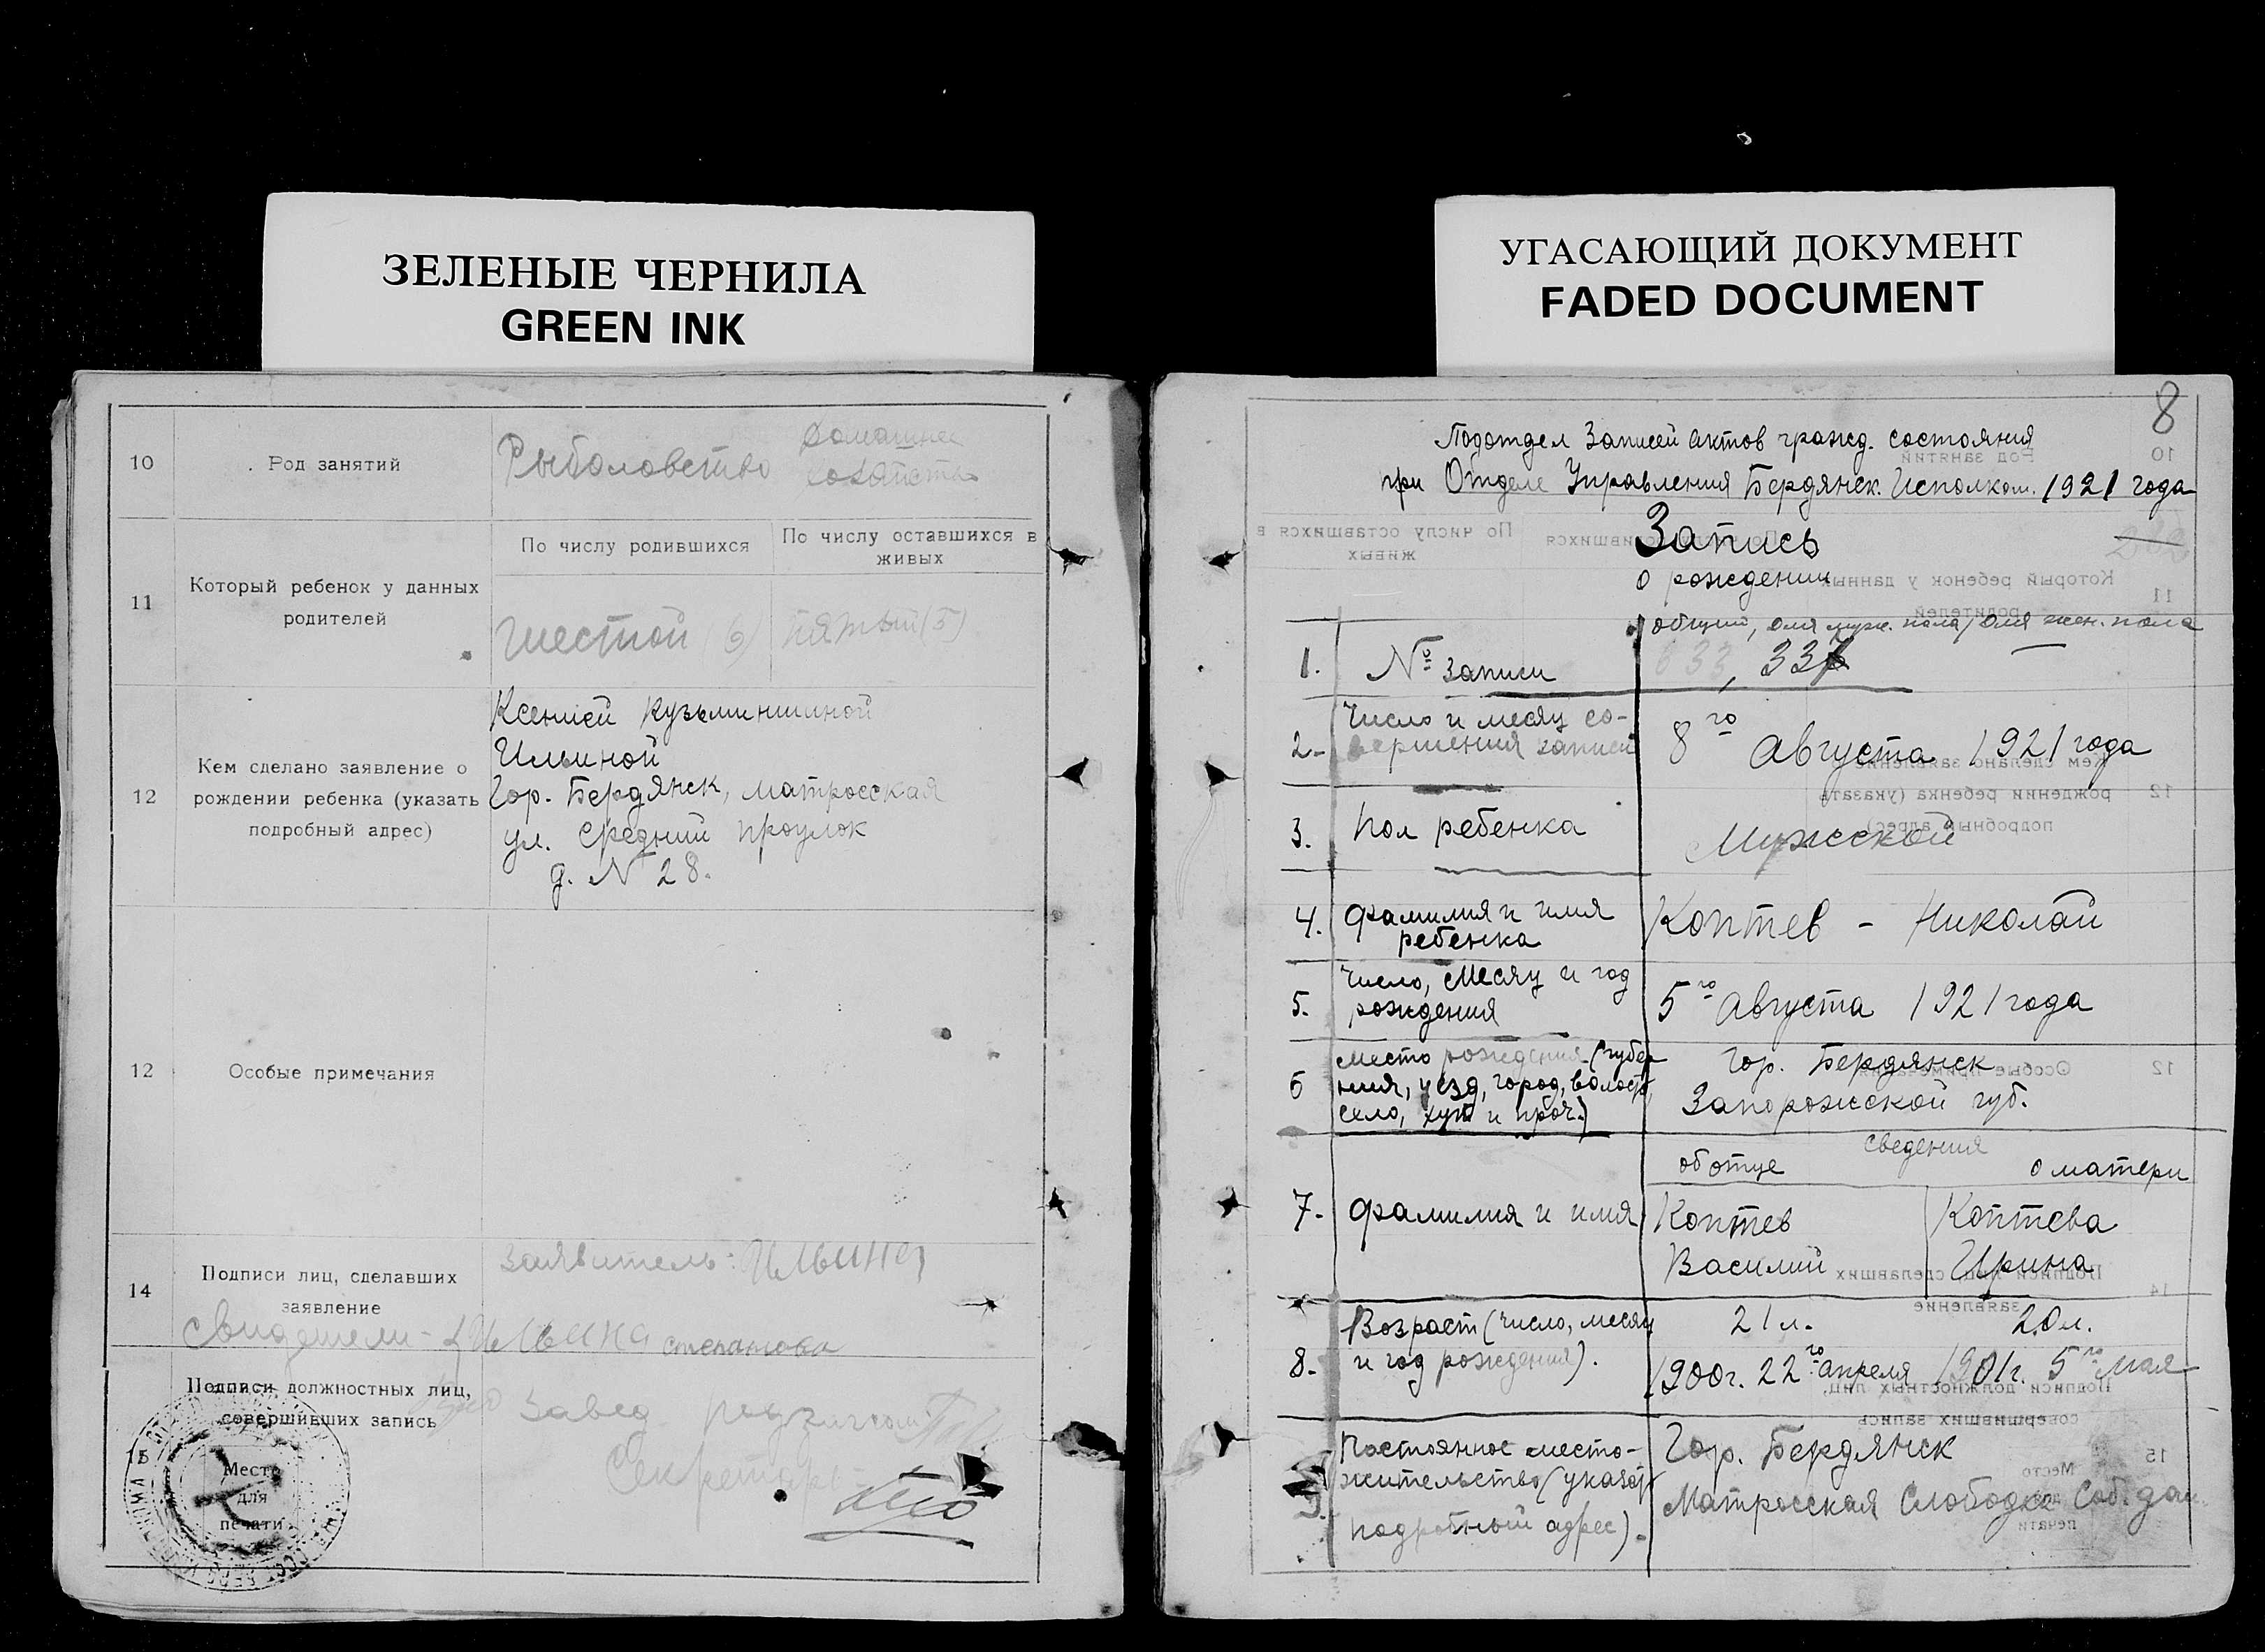 ЗЕЛЕНЫЕ ЧЕРНИЛА
GREEN INK
10
Род занятий
Рыболовство
домашнее
хозяйство
11
Который ребенок у данных
родителей
По числу родившихся
По числу оставшихся в
живых
шестой (6)
пятый (5)
12
Кем сделано заявление о
рождении ребенка (указать
подробный адрес)
Ксенией Кузьминишной
Ильиной
Гор. Бердянск, матросская
ул. средний проулок
д. № 28.
12
Особые примечания
14
Подписи лиц, сделавших
заявление
Заявитель: Ильина
Свидетели - Ильина Степанова
15
Подписи должностных лиц,
совершивших запись
Завед
Секретарь
Место
для
печати
УГАСАЮЩИЙ ДОКУМЕНТ
FADED DOCUMENT
8
Подотдел Записей актов гражд. состояния
при Отделе Управления Бердянск. Исполком. 1921 года
Запись
о рождении
общий, для муж. пола, для жен. пола
1. № записи 633, 337 —
2. Число и месяц со-
вершения записи
8го Августа 1921 года
3. Пол ребенка
Мужской
4. Фамилия и имя
ребенка
Коптев - Николай
5. Число, месяц и год
рождения
5го Августа 1921 года
6 место рождения (губер
ния, уезд, город, волость,
село, хут и проч.)
Гор. Бердянск
Запорожской губ.
сведения
об отце
о матери
7. Фамилия и имя
Коптев
Василий
Коптева
Ирина
8. Возраст (число, месяц
и год рождения).
21 л.
1900г. 22го апреля
20 л.
1901г. 5го мая
9. Постоянное место-
жительство (указать
подробный адрес).
Гор. Бердянск
Матросская Слободка Соб. дом.